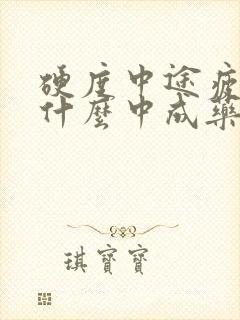 硬度中途疲
什麼中成藥
琪寶寶